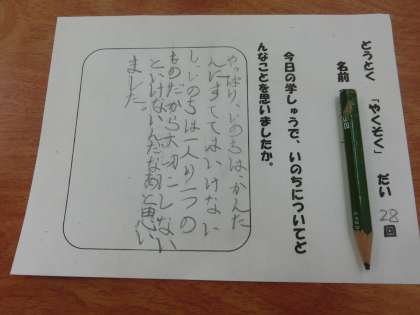 どうとく 「やくそく」 だい28回
名前
今日の学しゅうで、いのちについてど
んなことを思いましたか。
やっぱり、いのちは、かんた
んにすててはいけない
し、いのちは一人り一つの
ものだから大切にしない
といけないんだなあと思い
ました。